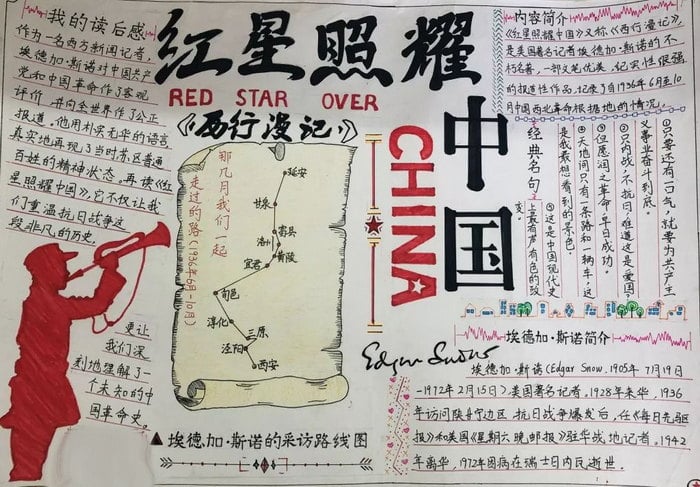 我的读后感
作为一名西方新闻记者,
埃德加·斯诺对中国共产
党和中国革命作了客观
评价,并向全世界作了公正
报道。他用朴实无华的语言
真实地再现了当时苏区普通
百姓的精神状态。再读《红
星照耀中国》,它不仅让我
们重温抗日战争这
段非凡的历史。
更让
我们深
刻地理解了一
个未知的中
国革命史。
红星照耀
中国
RED STAR OVER
CHINA
《西行漫记》
那几月我们一起
走过的路(1936年6月-10月)
延安
甘泉
富县
洛川
黄陵
宜君
旬邑
淳化
三原
泾阳
西安
▲埃德加·斯诺的采访路线图
内容简介
《红星照耀中国》又称《西行漫记》,
是美国著名记者埃德加·斯诺的不
朽名著,一部文笔优美,纪实性很强
的报道性作品,记录了自1936年6月至10
月中国西北革命根据地的情况。
经典名句
①只要还有一口气,就要为共产主
义事业奋斗到底。
②只内战,不抗日,难道这是爱国?
③但愿润之革命早日成功。
④天地间只有一条路和一辆车,这
是我最想看到的景色。
⑤这是中国现代史
上最有声有色的故
事。
Edgar Snow
埃德加·斯诺简介
埃德加·斯诺(Edgar Snow,1905年7月19日
-1972年2月15日),美国著名记者。1928年来华,1936
年访问陕甘宁边区,抗日战争爆发后,任《每日先驱
报》和美国《星期六晚邮报》驻华战地记者。1942
年离华,1972年因病在瑞士日内瓦逝世。